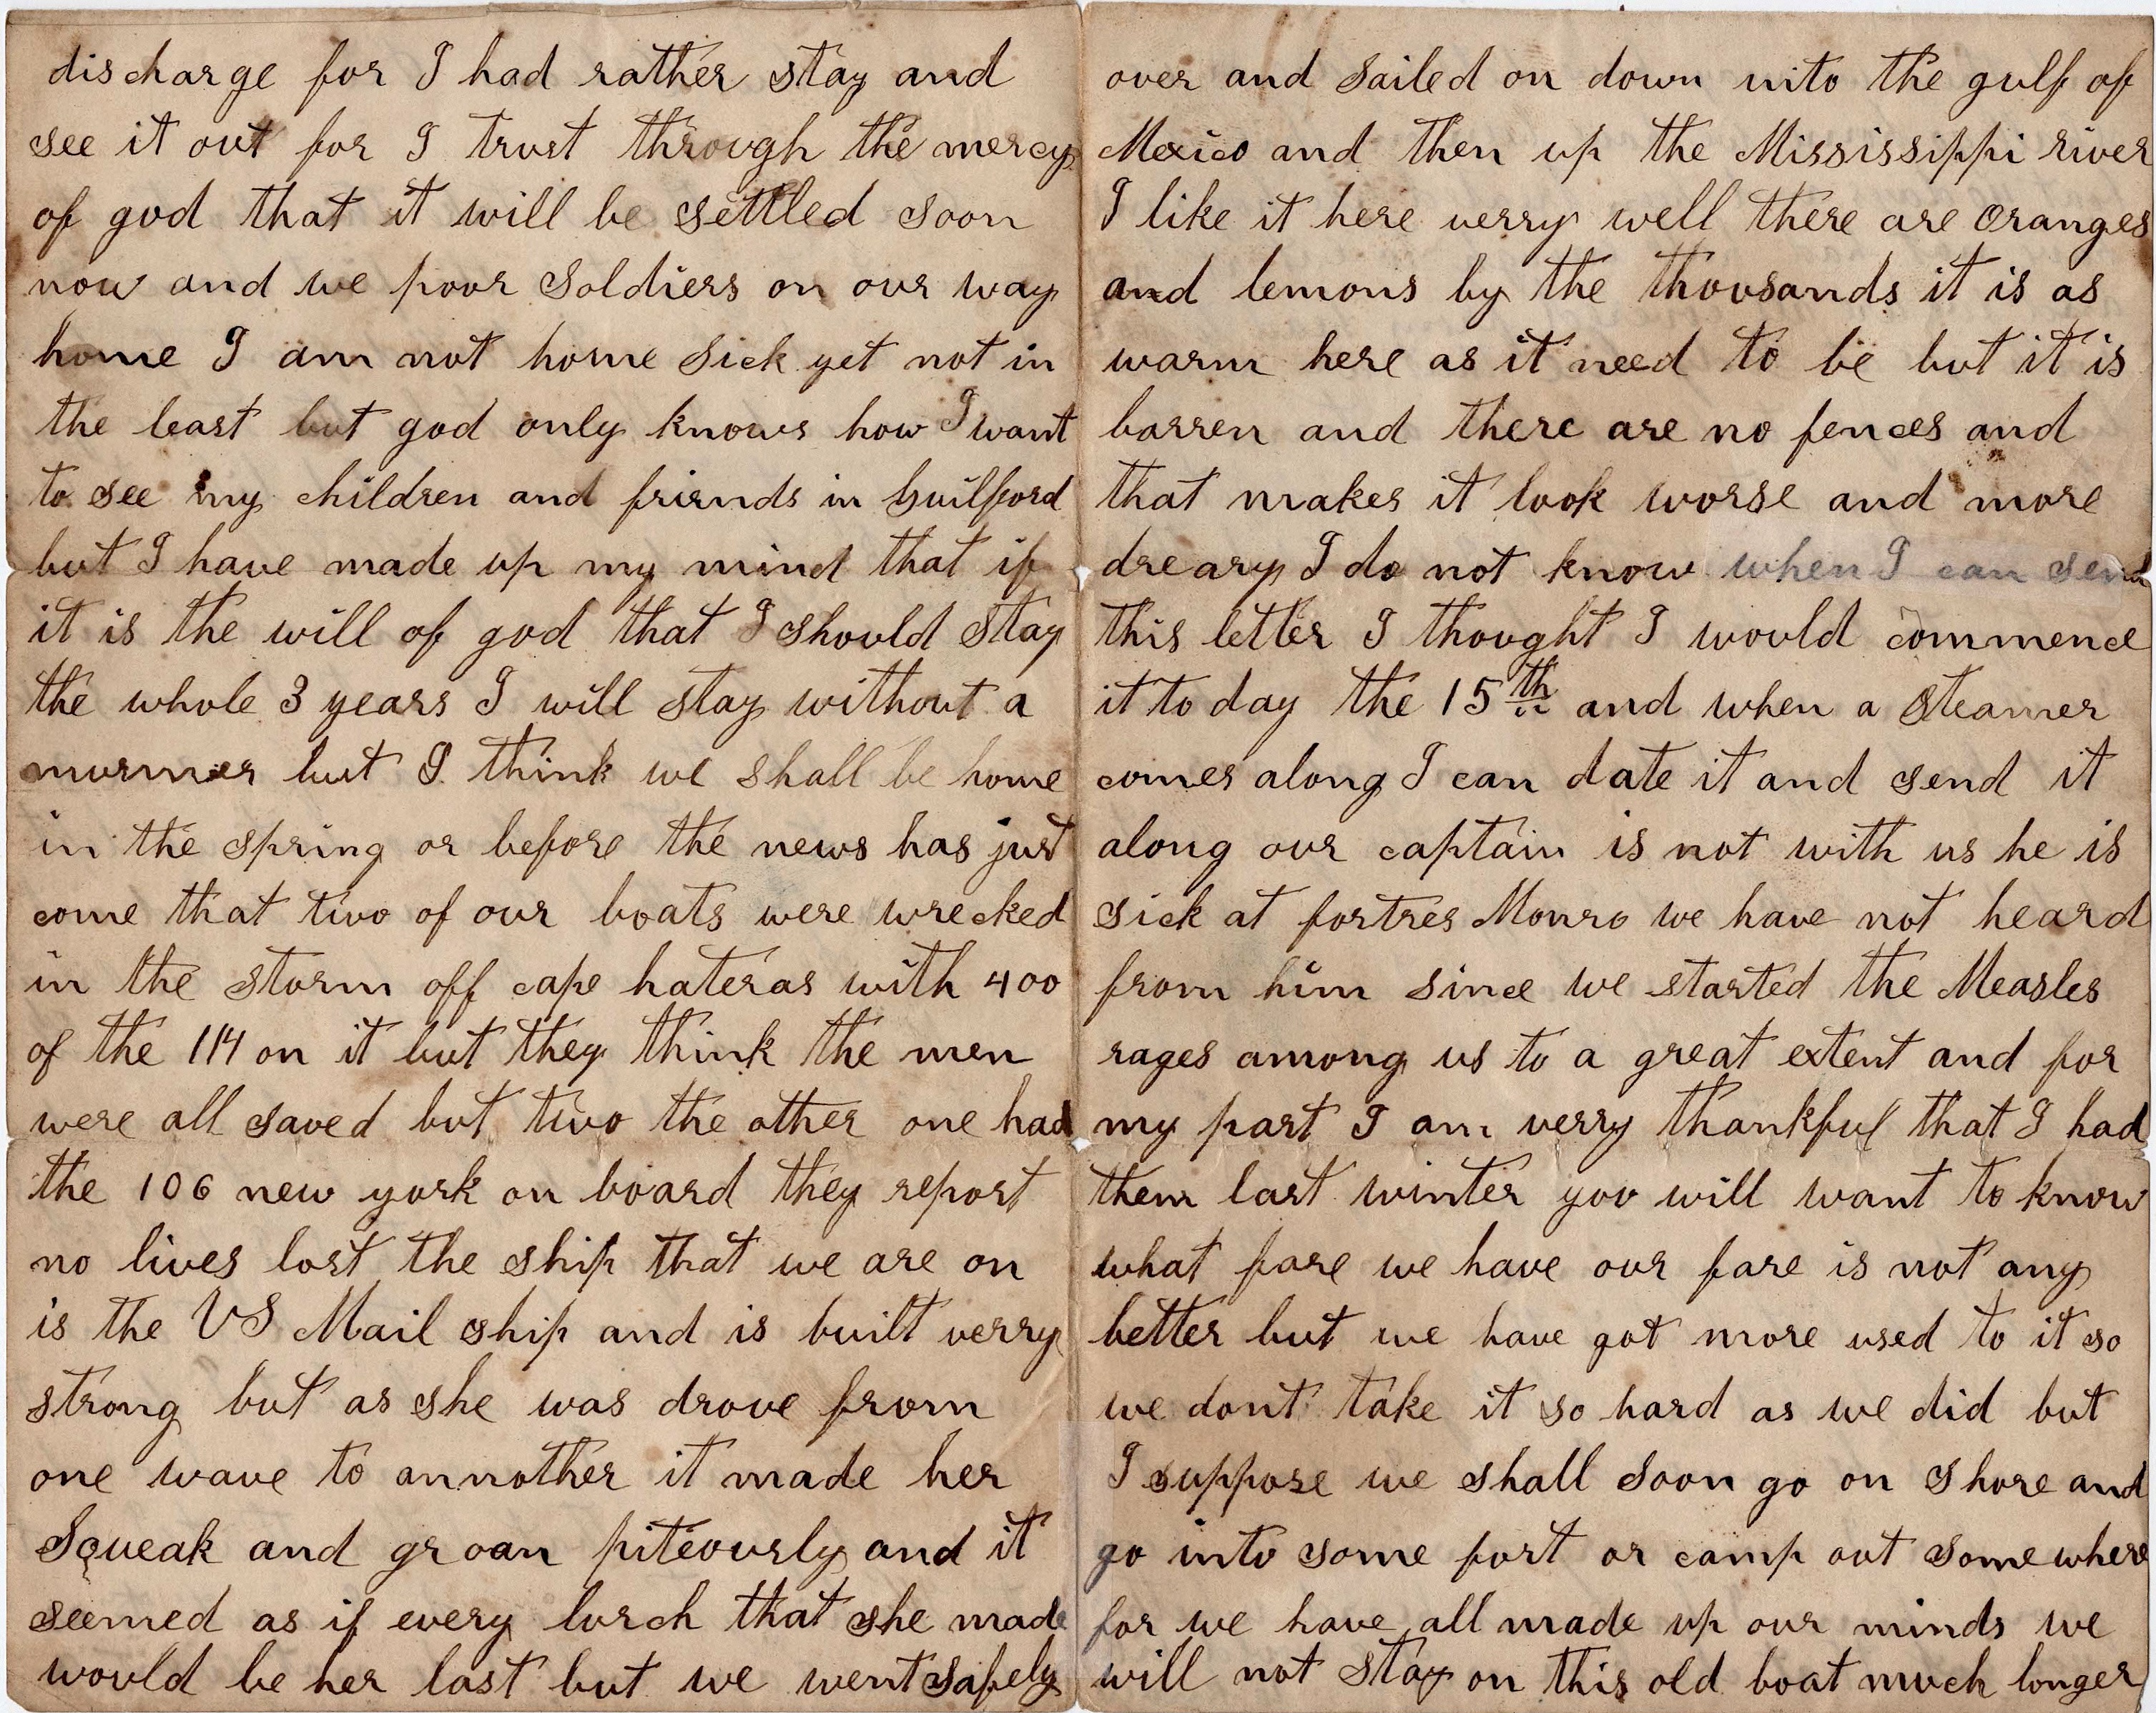 discharge for I had rather stay and
see it out for I trust through the mercy
of god that it will be settled soon
now and we poor Soldiers on our way
home I am not home Sick yet not in
the least but god only knows how I want
to see my children and friends in Guilford
but I have made up my mind that if
it is the will of god that I should stay
the whole 3 years I will stay without a
murmer but I think we shall be home
in the spring or before the news has just
come that two of our boats were wrecked
in the storm off cape hateras with 400
of the 114 on it but they think the men
were all saved but two the other one had
the 106 new york on board they report
no lives lost the ship that we are on
is the US Mail ship and is built verry
strong but as she was drove from
one wave to annother it made her
Squeak and groan piteously and it
seemed as if every lurch that she made
would be her last but we went Safely
over and Sailed on down into the gulf of
Mexico and then up the Mississippi river
I like it here verry well there are oranges
and lemons by the thousands it is as
warm here as it need to be but it is
barren and there are no fences and
that makes it look worse and more
dreary I do not know when I can send
this letter I thought I would commence
it to day the 15th and when a Steamer
comes along I can date it and send it
along our captain is not with us he is
sick at fortres Monro we have not heard
from him since we started the Measles
rages among us to a great extent and for
my part I am verry thankful that I had
them last winter you will want to know
what fare we have our fare is not any
better but we have got more used to it so
we dont take it so hard as we did but
I suppose we shall Soon go on Shore and
go into some fort or camp out somewhere
for we have all made up our minds we
will not Stay on this old boat much longer